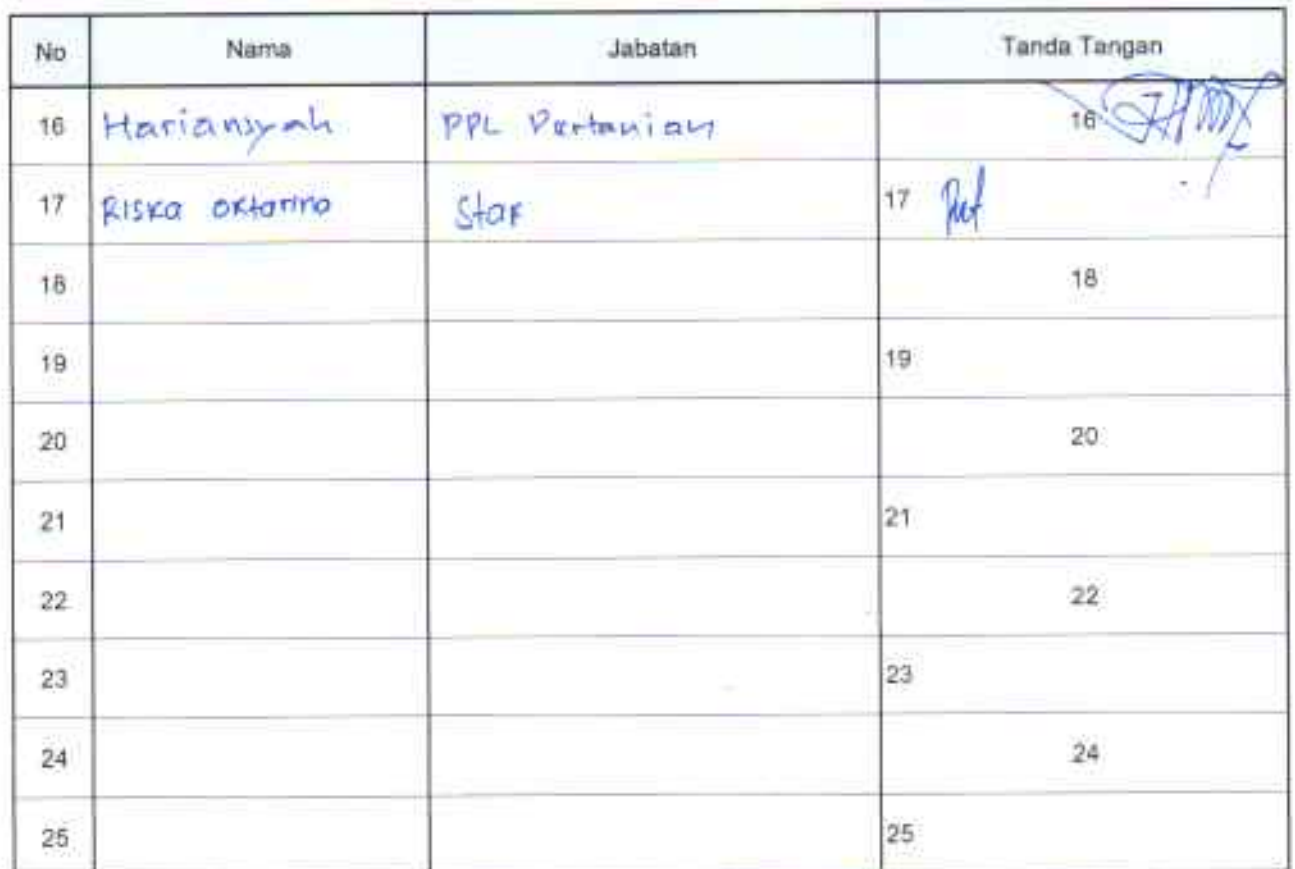 No Nama Jabatan Tanda Tangan
16 Hariansyah PPL Pertanian 16
17 Riska oktarina Staf 17
18 18
19 19
20 20
21 21
22 22
23 23
24 24
25 25